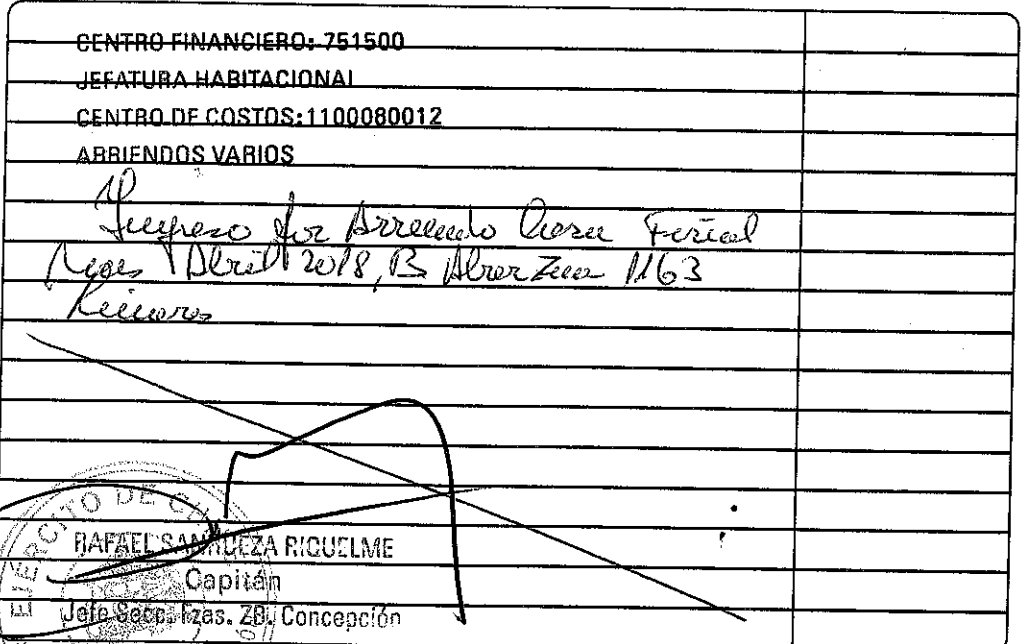 CENTRO FINANCIERO: 751500
JEFATURA HABITACIONAL
CENTRO DE COSTOS:1100080012
ARRIENDOS VARIOS
Ingreso por Arriendo Casa Fiscal
Abril 2018, 1163
Linares
EJERCITO DE
RAFAEL SANHUEZA RIQUELME
Capitán
Jefe Secc. Fzas. ZB. Concepción